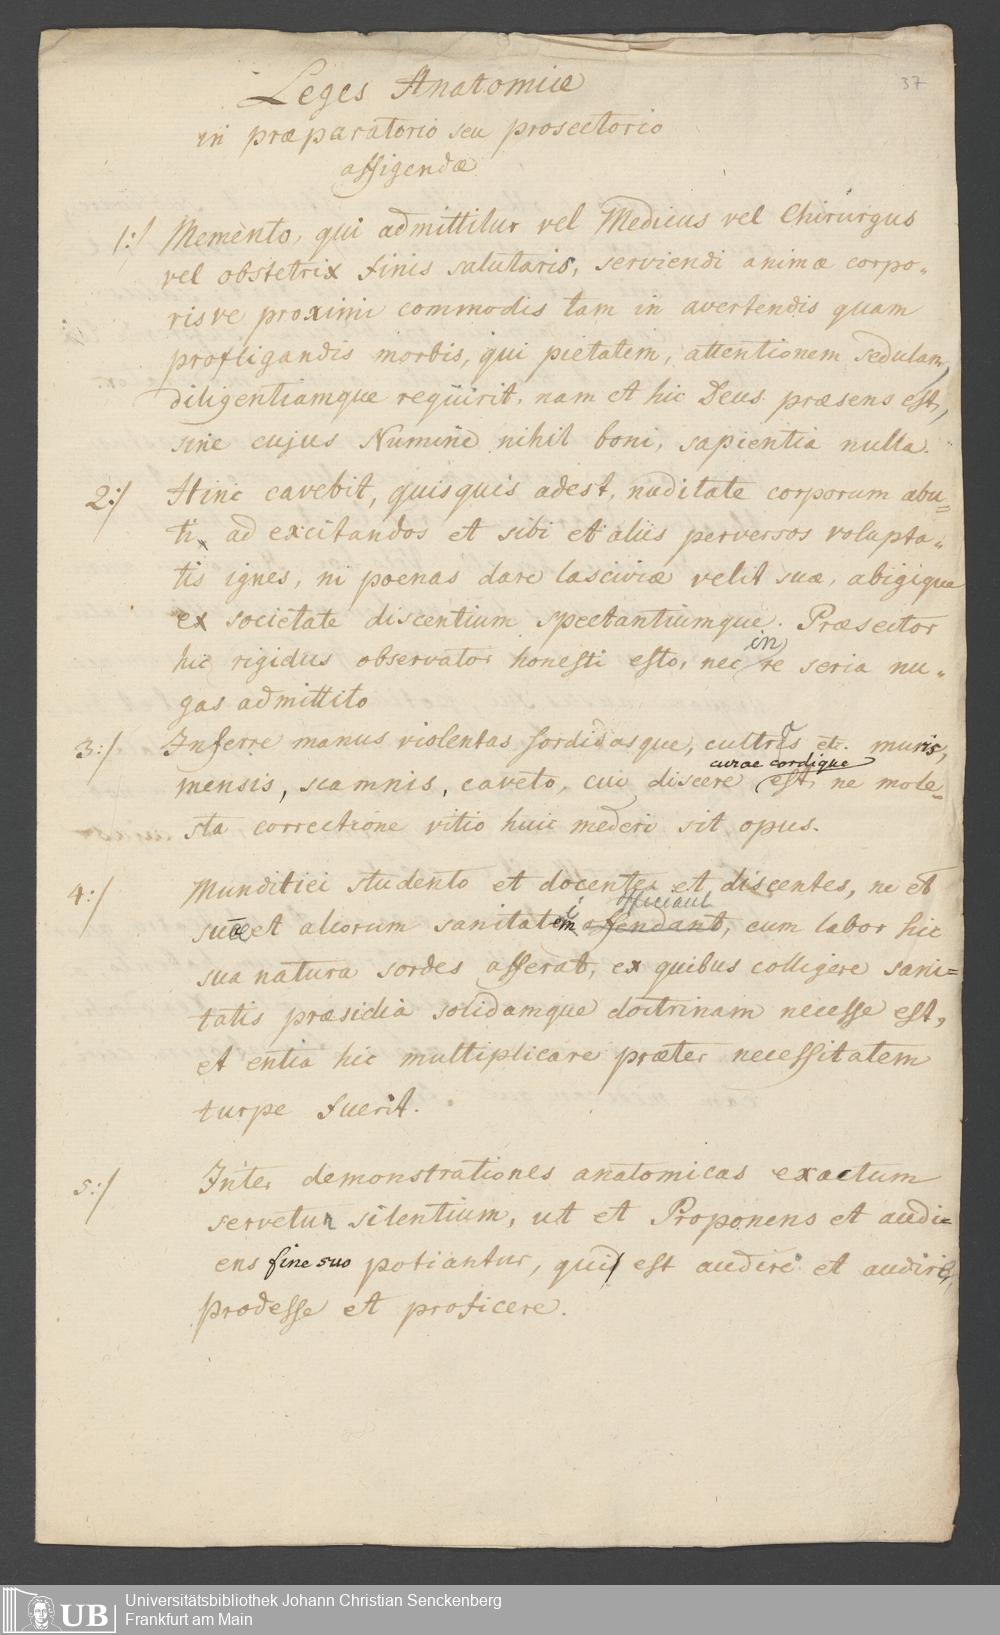 37
Leges Anatomiæ
in præparatorio seu prosectorio
affigendæ
1:/ Memento, qui admittitur vel Medicus vel Chirurgus
vel obstetrix finis salutaris, serviendi animæ corpo„
risve proximi commodis tam in avertendis quam
profligandis morbis, qui pietatem, attentionem sedulam,
diligentiamque requirit, nam et hic Deus præsens est,
sine cujus Numine nihil boni, sapientia nulla.
2:/ Hinc cavebit, quisquis adest, nuditate corporum abu=
ti, ad excitandos et sibi et aliis perversos volupta„
tis ignes, ni poenas dare lasciviæ velit suæ, abigique
ex societate discentium spectantiumque. Præsector
hic rigidus observator honesti esto, nec in re seria nu„
gas admittito
3:/ Inferre manus violentas sordidasque, cultros etc. muris,
mensis, scamnis, caveto, cui discere curae cordique est, ne mole=
sta correctione vitio huic mederi sit opus.
4:/ Munditiei studento et docentes et discentes, ne et
suæ et aliorum sanitati officiant, cum labor hic
sua natura sordes afferat, ex quibus colligere sani=
tatis præsidia solidamque doctrinam necesse est,
et entia hic multiplicare præter necessitatem
turpe fuerit.
5:/ Inter demonstrationes anatomicas exactum
servetur silentium, ut et Proponens et audi=
ens fine suo potiantur, qui est audire et audiri,
prodesse et proficere.
UB
Universitätsbibliothek Johann Christian Senckenberg
Frankfurt am Main